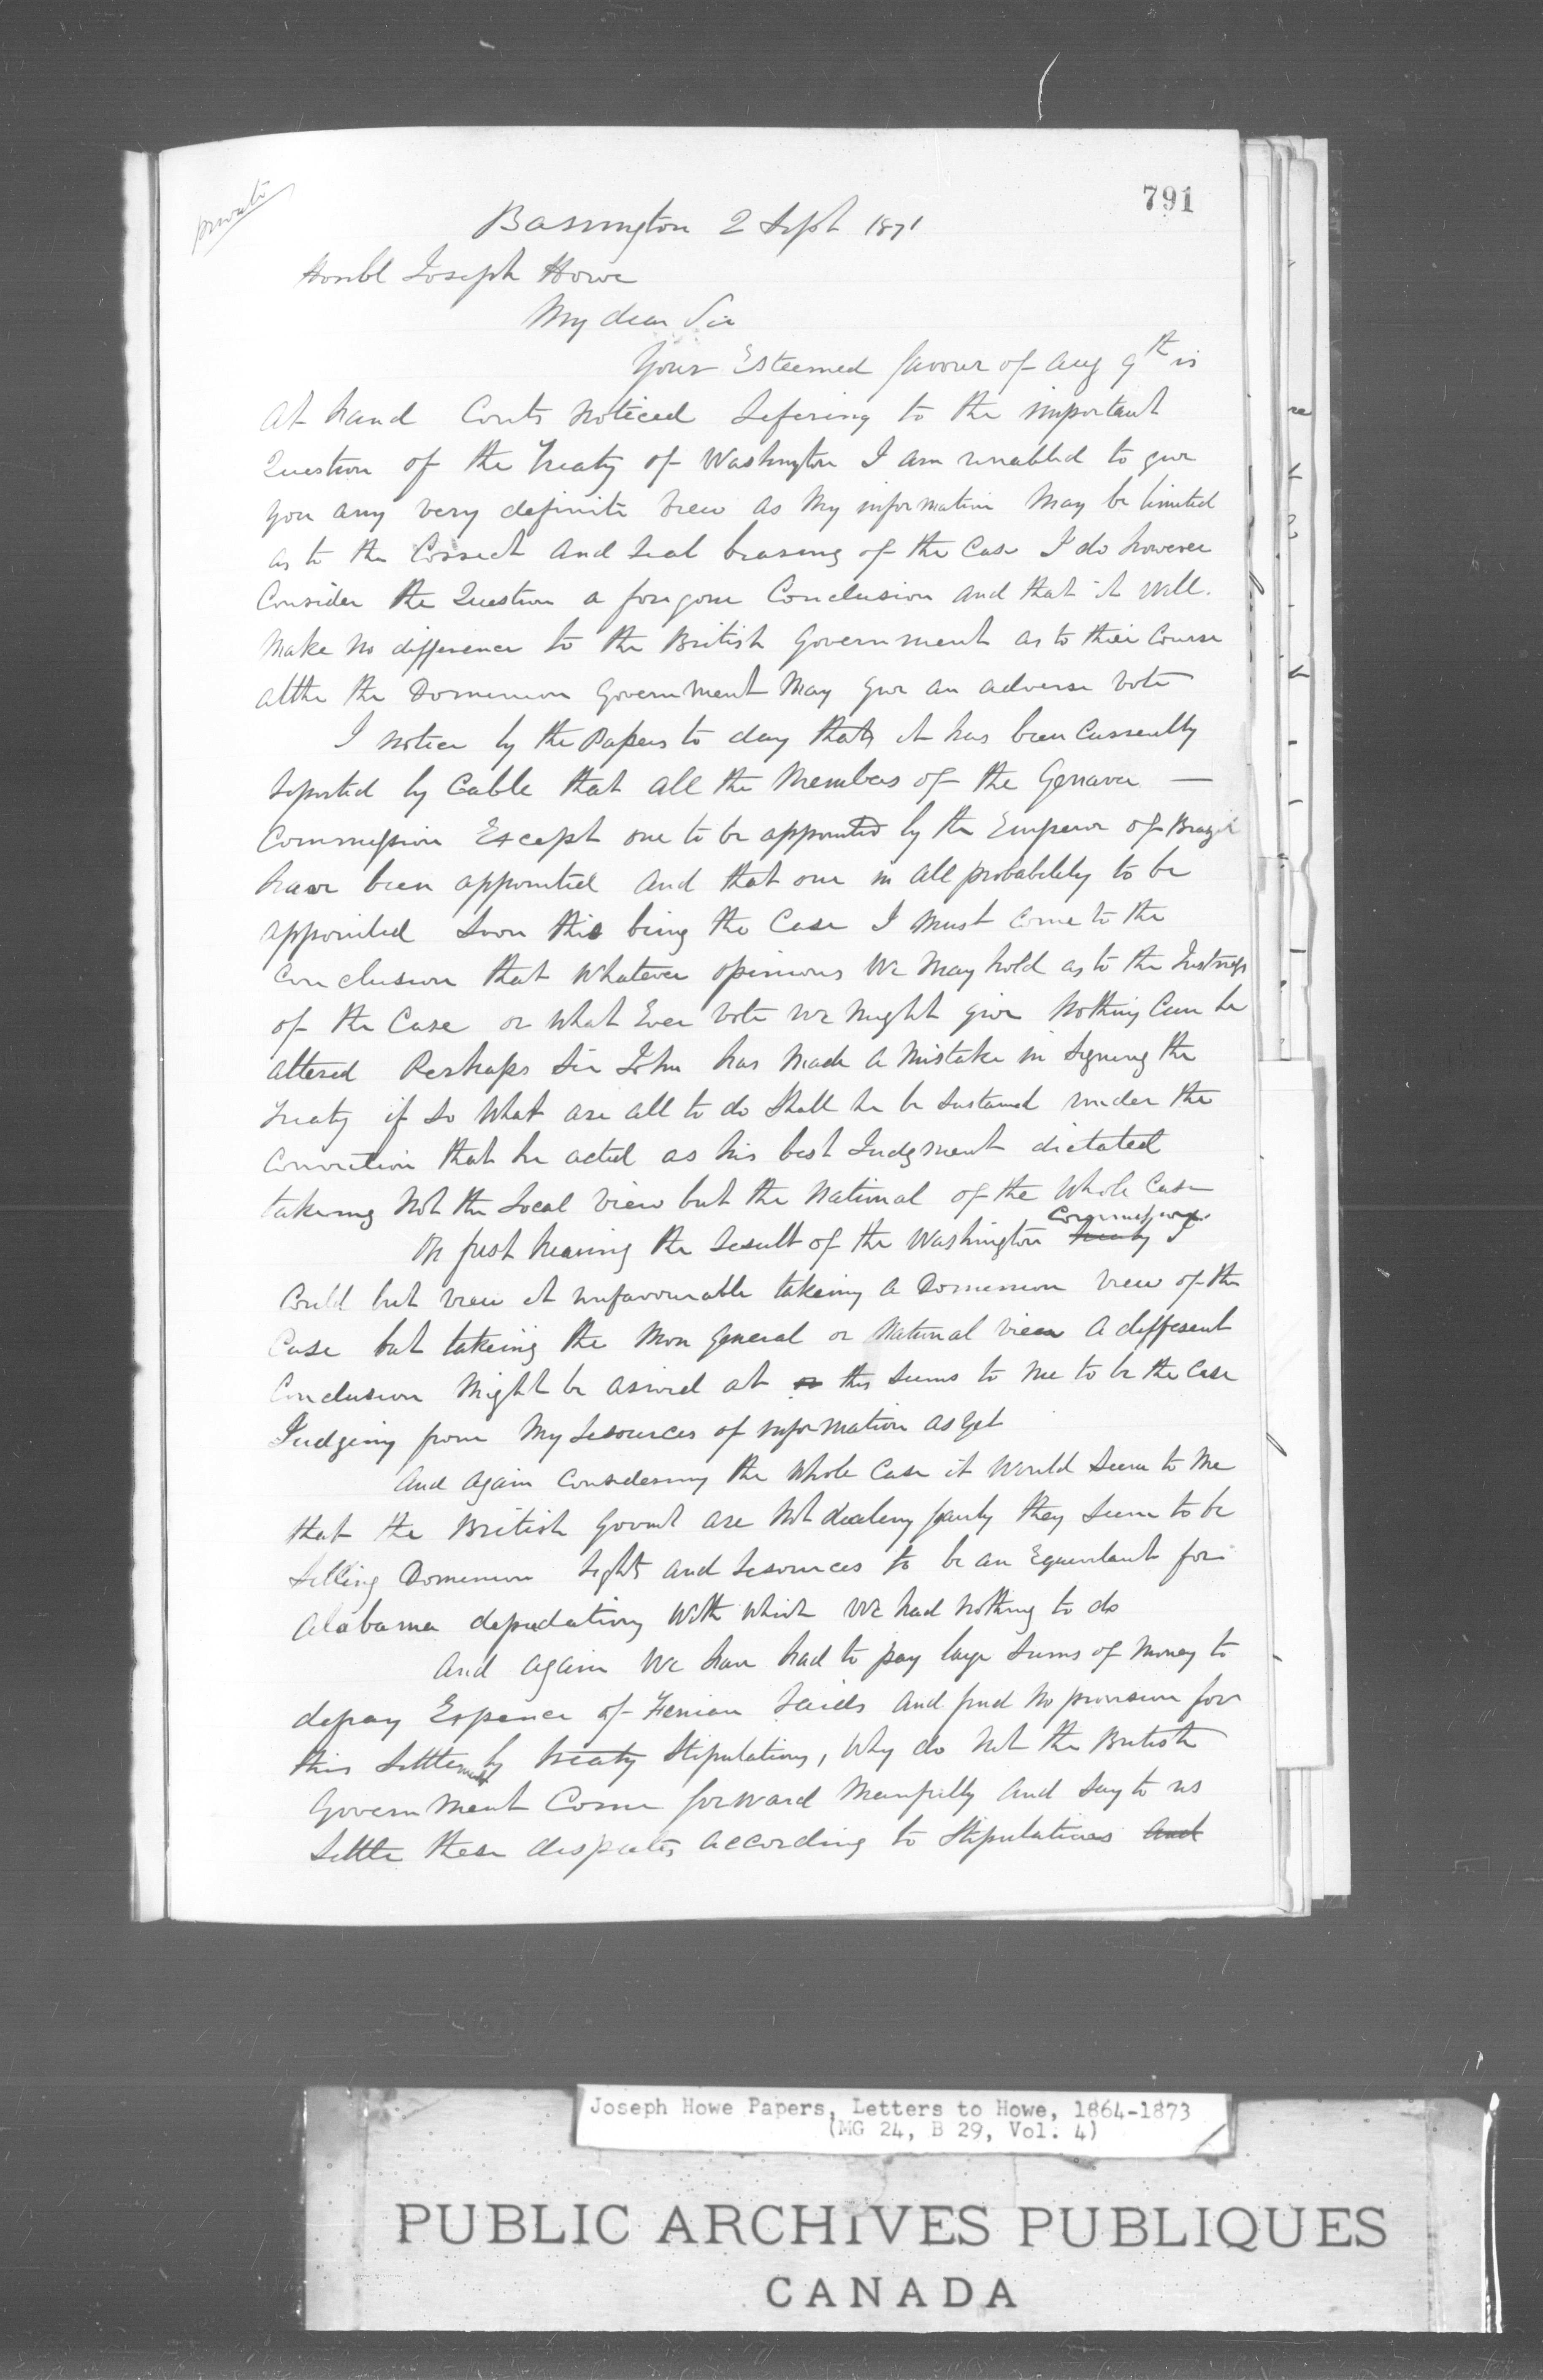 private
791
Barrington 2 Sept 1871
Honbl Joseph Howe
My dear Sir
Your Esteemed favour of Aug 9th is
at hand Conts noticed Refering to the important
Question of the Treaty of Washington I am unabled to give
you any very definite view as My information May be limited
as to the Correct and real bearing of the Case I do however
Consider the Question a forgone Conclusion and that it will.
Make no difference to the British Government as to their Course
altho the Dominion Government May give an adverse vote
I notice by the Papers to day that it has been Currently
reported by Cable that all the Members of the Genava —
Commission Except one to be appointed by the Emperor of Brazil
have been appointed and that one in all probability to be
appointed Soon this being the Case I Must Come to the
Conclusion that Whatever opinions We May hold as to the Justness
of the Case or what Ever vote we Might give Nothing Can be
altered Perhaps Sir John has Made a Mistake in Signing the
Treaty if So What are all to do Shall he be Sustained under the
Conviction that he acted as his best Judgment dictated
taking Not the Local View but the National of the Whole Case
On first hearing the result of the Washington Treaty Commission I
Could but view it unfavourable takeing a Dominion view of the
Case but takeing the More general or National view a different
Conclusion Might be arived at or this Seems to Me to be the Case
Judgeing from My resources of information as yet
And again Considering the Whole Case it Would Seem to Me
that the British Govmt are Not dealing fairly they Seem to be
Selling Dominion rights and resources to be an Equivelant for
Alabama depredations With Which We had Nothing to do
And again We have had to pay large Sums of Money to
defray Expence of Fenian raids and find No provision for
this Settlement by treaty Stipulations, Why do Not the British
Government Come forward Manfully and Say to us
Settle these disputes according to Stipulations and
Joseph Howe Papers, Letters to Howe, 1864-1873
(MG 24, B 29, Vol. 4)
PUBLIC ARCHIVES PUBLIQUES
CANADA